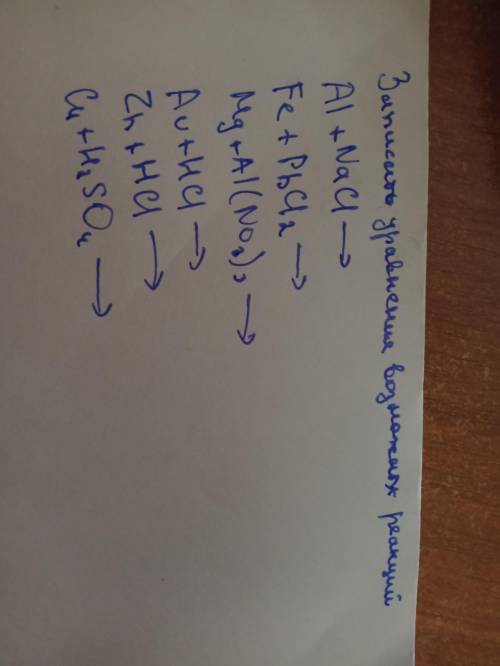 Записать уравнения возможных реакций
Al + NaCl →
Fe + PbCl₂ →
Mg + Al(NO₃)₃ →
Au + HCl →
Zn + HCl →
Cu + H₂SO₄ →